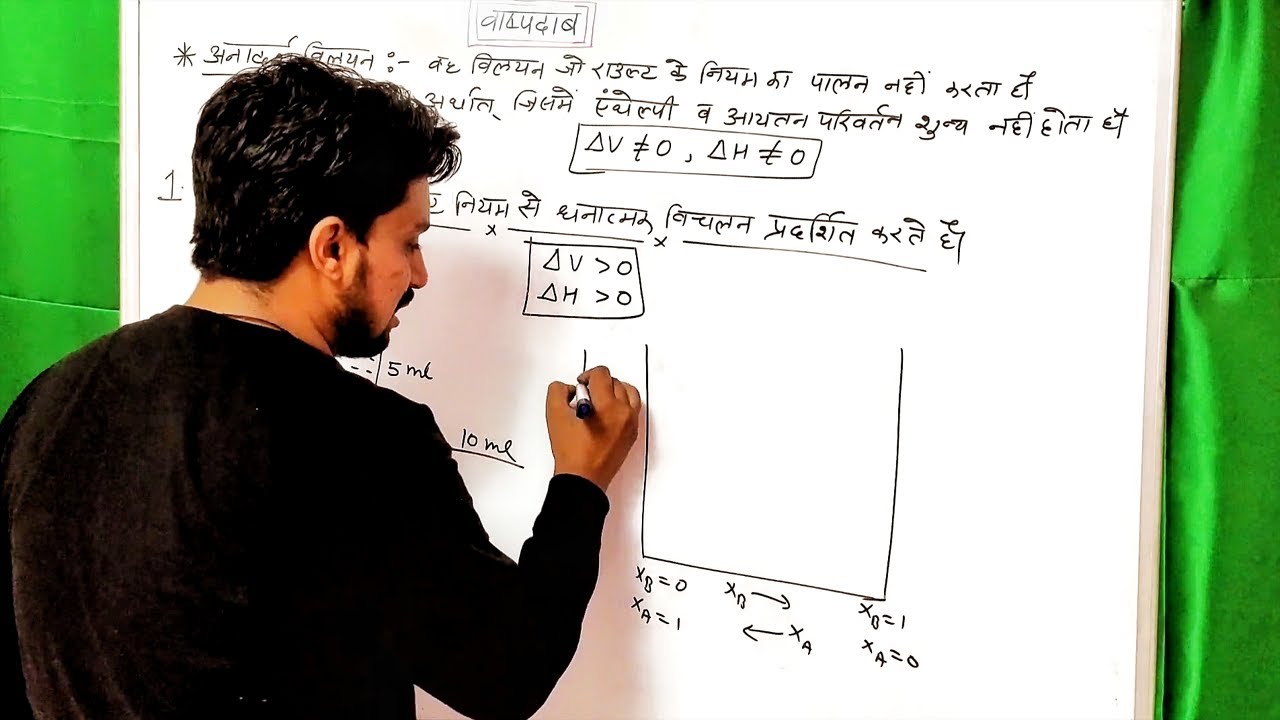 वाष्पदाब
* अनादर्श विलयन :- वह विलयन जो राउल्ट के नियम का पालन नहीं करता है
अर्थात् जिसमें एंथेल्पी व आयतन परिवर्तन शून्य नहीं होता है
ΔV ≠ 0 , ΔH ≠ 0
1. नियम से धनात्मक विचलन प्रदर्शित करते है
ΔV > 0
ΔH > 0
5 ml
10 ml
x_B = 0 x_B → x_B = 1
x_A = 1 ← x_A x_A = 0